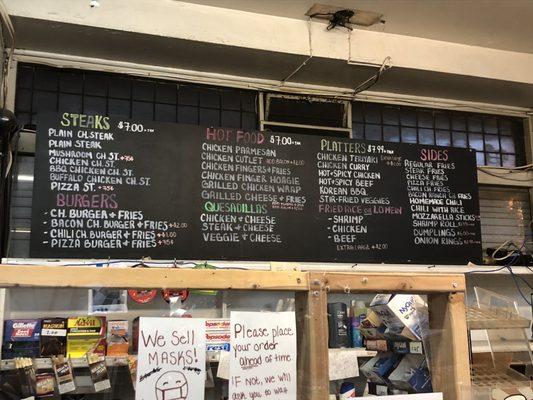 STEAKS $7.00+TAX
PLAIN CH.STEAK
PLAIN STEAK
MUSHROOM CH.ST +75¢
CHICKEN CH.ST.
BBQ CHICKEN CH.ST.
BUFFALO CHICKEN CH.ST.
PIZZA ST. +75¢
BURGERS
- CH.BURGER + FRIES
- BACON CH.BURGER + FRIES +$2.00
- CHILI CH.BURGER + FRIES +$1.00
- PIZZA BURGER + FRIES +75¢
HOT FOOD $7.00+TAX
CHICKEN PARMESAN
CHICKEN CUTLET
CHICKEN FINGERS + FRIES
CHICKEN FINGER HOAGIE
GRILLED CHICKEN WRAP
GRILLED CHICKEN + CHEESE
QUESADILLAS
CHICKEN + CHEESE
STEAK + CHEESE
VEGGIE + CHEESE
PLATTERS $7.99+TAX
CHICKEN TERIYAKI
CHICKEN CURRY
HOT+SPICY CHICKEN
HOT+SPICY BEEF
KOREAN BBQ
STIR-FRIED VEGGIES
FRIED RICE OR LO MEIN
- SHRIMP
- CHICKEN
- BEEF
EXTRA LARGE +$2.00
SIDES
REGULAR FRIES
STEAK FRIES
CHEESE FRIES
PIZZA FRIES
CHILI CH.FRIES
BACON RANCH CH.FRIES
HOMEMADE CHILI
CHILI WITH RICE
MOZZARELLA STICKS
SHRIMP ROLL
DUMPLINGS
ONION RINGS
We SELL
MASKS!
Please place
your order
ahead of time
IF NOT, we will
ask you to wait
Gillette